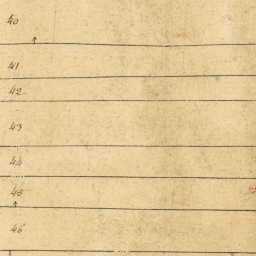 40
41
42
43
44
45
46